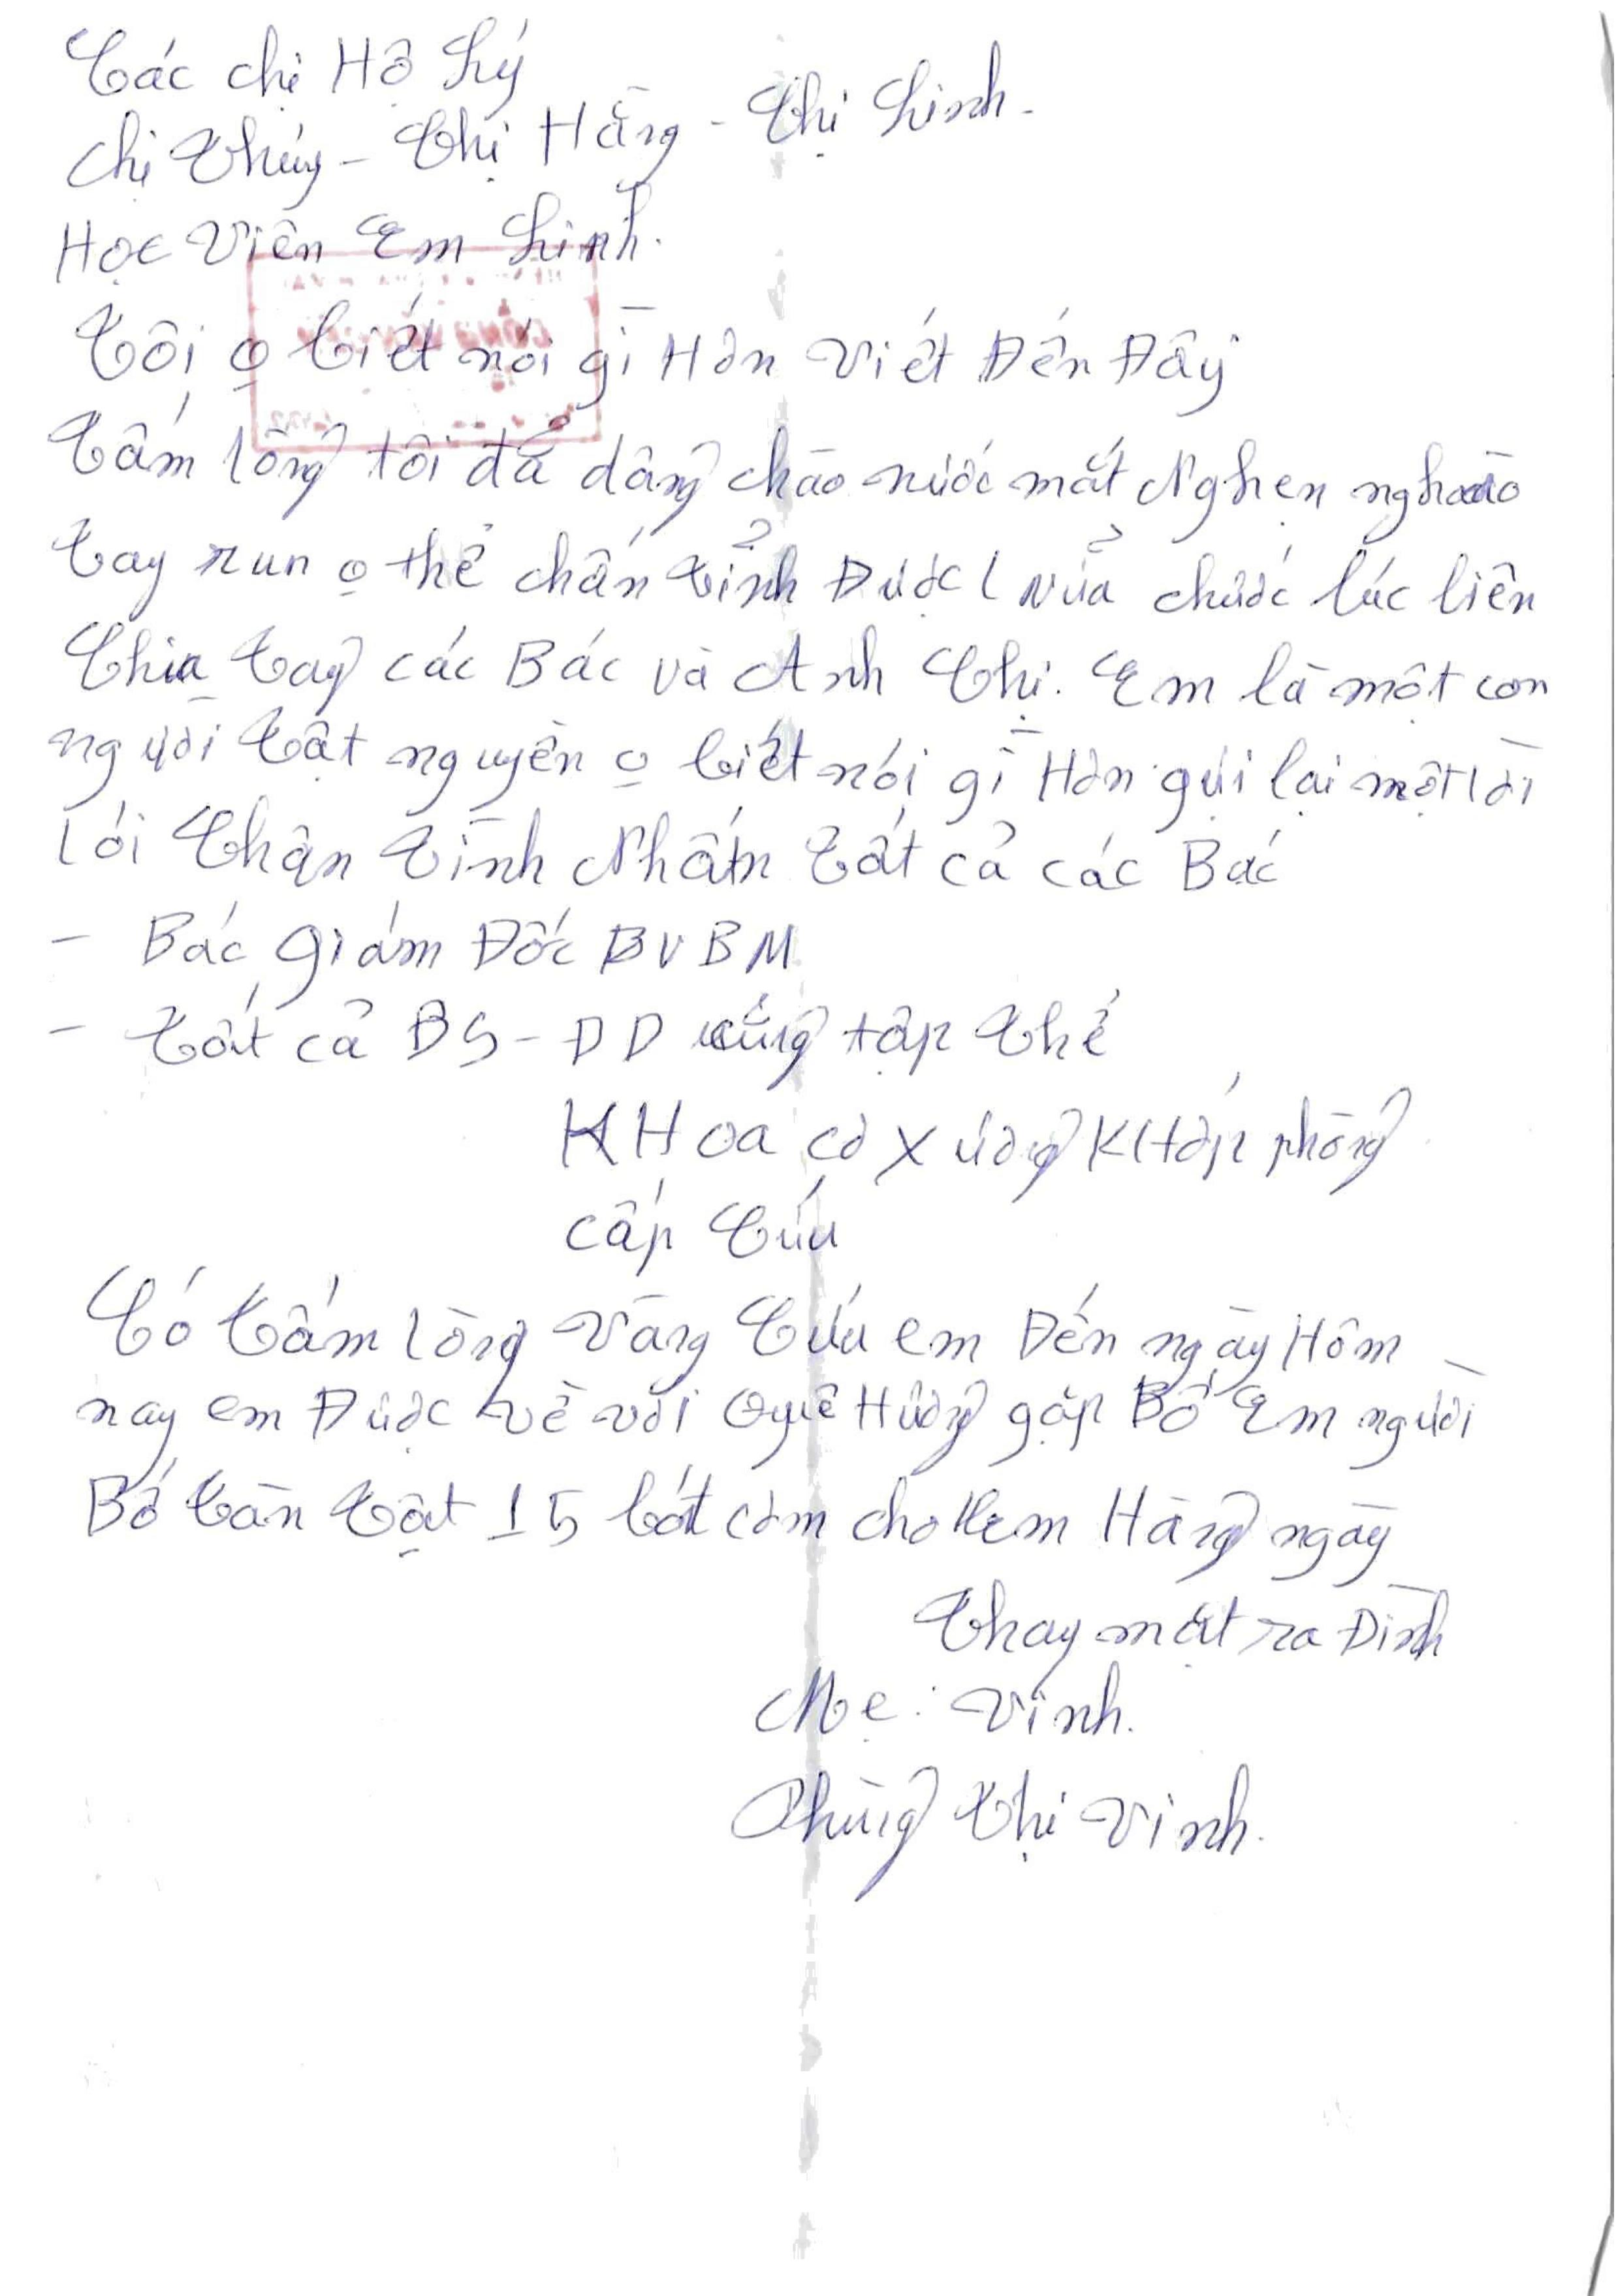 Các chị Hộ Lý
Chị Thúy - Chị Hằng - Chị Linh.
Học Viên Em Linh.
Tôi o biết nói gì Hơn Viết Đến Đây
Tấm lòng tôi đã dâng chào nước mắt Nghẹn nghào
Tay run o thể chấn tỉnh Được Nữa chước lúc liên
Chia tay các Bác và Anh Chị. Em là một con
người tật nguyền o biết nói gì Hơn gửi lại một lời
lói Chân Tình Nhất Tất cả các Bác
- Bác giám Đốc BVBM
- Tất cả BS - DD cùng tập thể
KHoa cơ Xương KHớp phòng
cấp Cứu
Có tấm lòng vàng Cứu em Đến ngày Hôm
nay em Được về với Quê Hương gặp Bố Em người
Bố tàn tật 15 bát cơm cho em Hàng ngày
Thay mặt ra Đình
Mẹ: Vinh.
Phùng Thị Vinh.